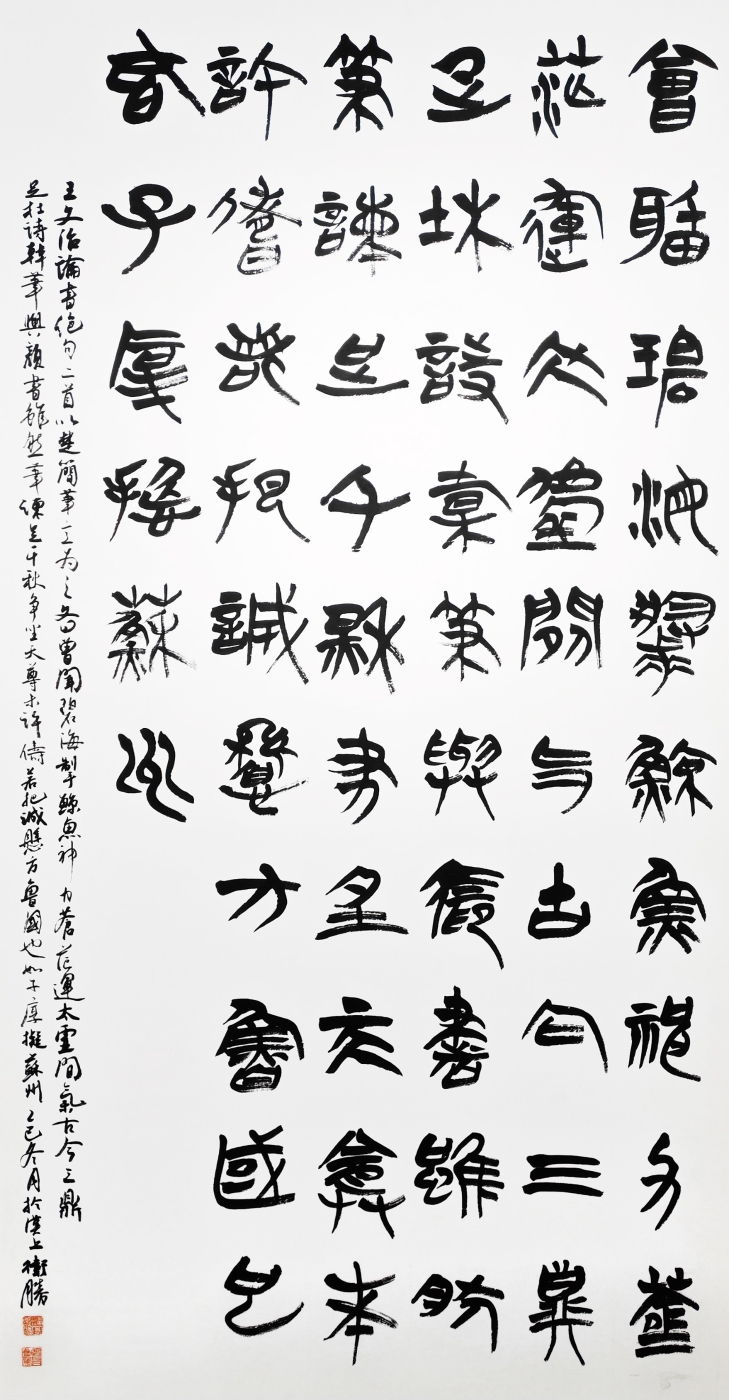 曾聞碧海掣鯨魚神力蒼
茫運太虛間气古今三鼎
足杜詩韓筆與顏書雖然
筆諫足千秋爭坐文尊未
許儔若把誠懸方魯國也
如子厚擬蘇州
王文治論書絕句二首以楚簡筆意為之文曰曾聞碧海掣鯨魚神力蒼茫運太虛間氣古今三鼎
足杜詩韓筆與顏書雖然筆諫足千秋爭坐文尊未許儔若把誠懸方魯國也如子厚擬蘇州乙巳冬月於漢上衛勝